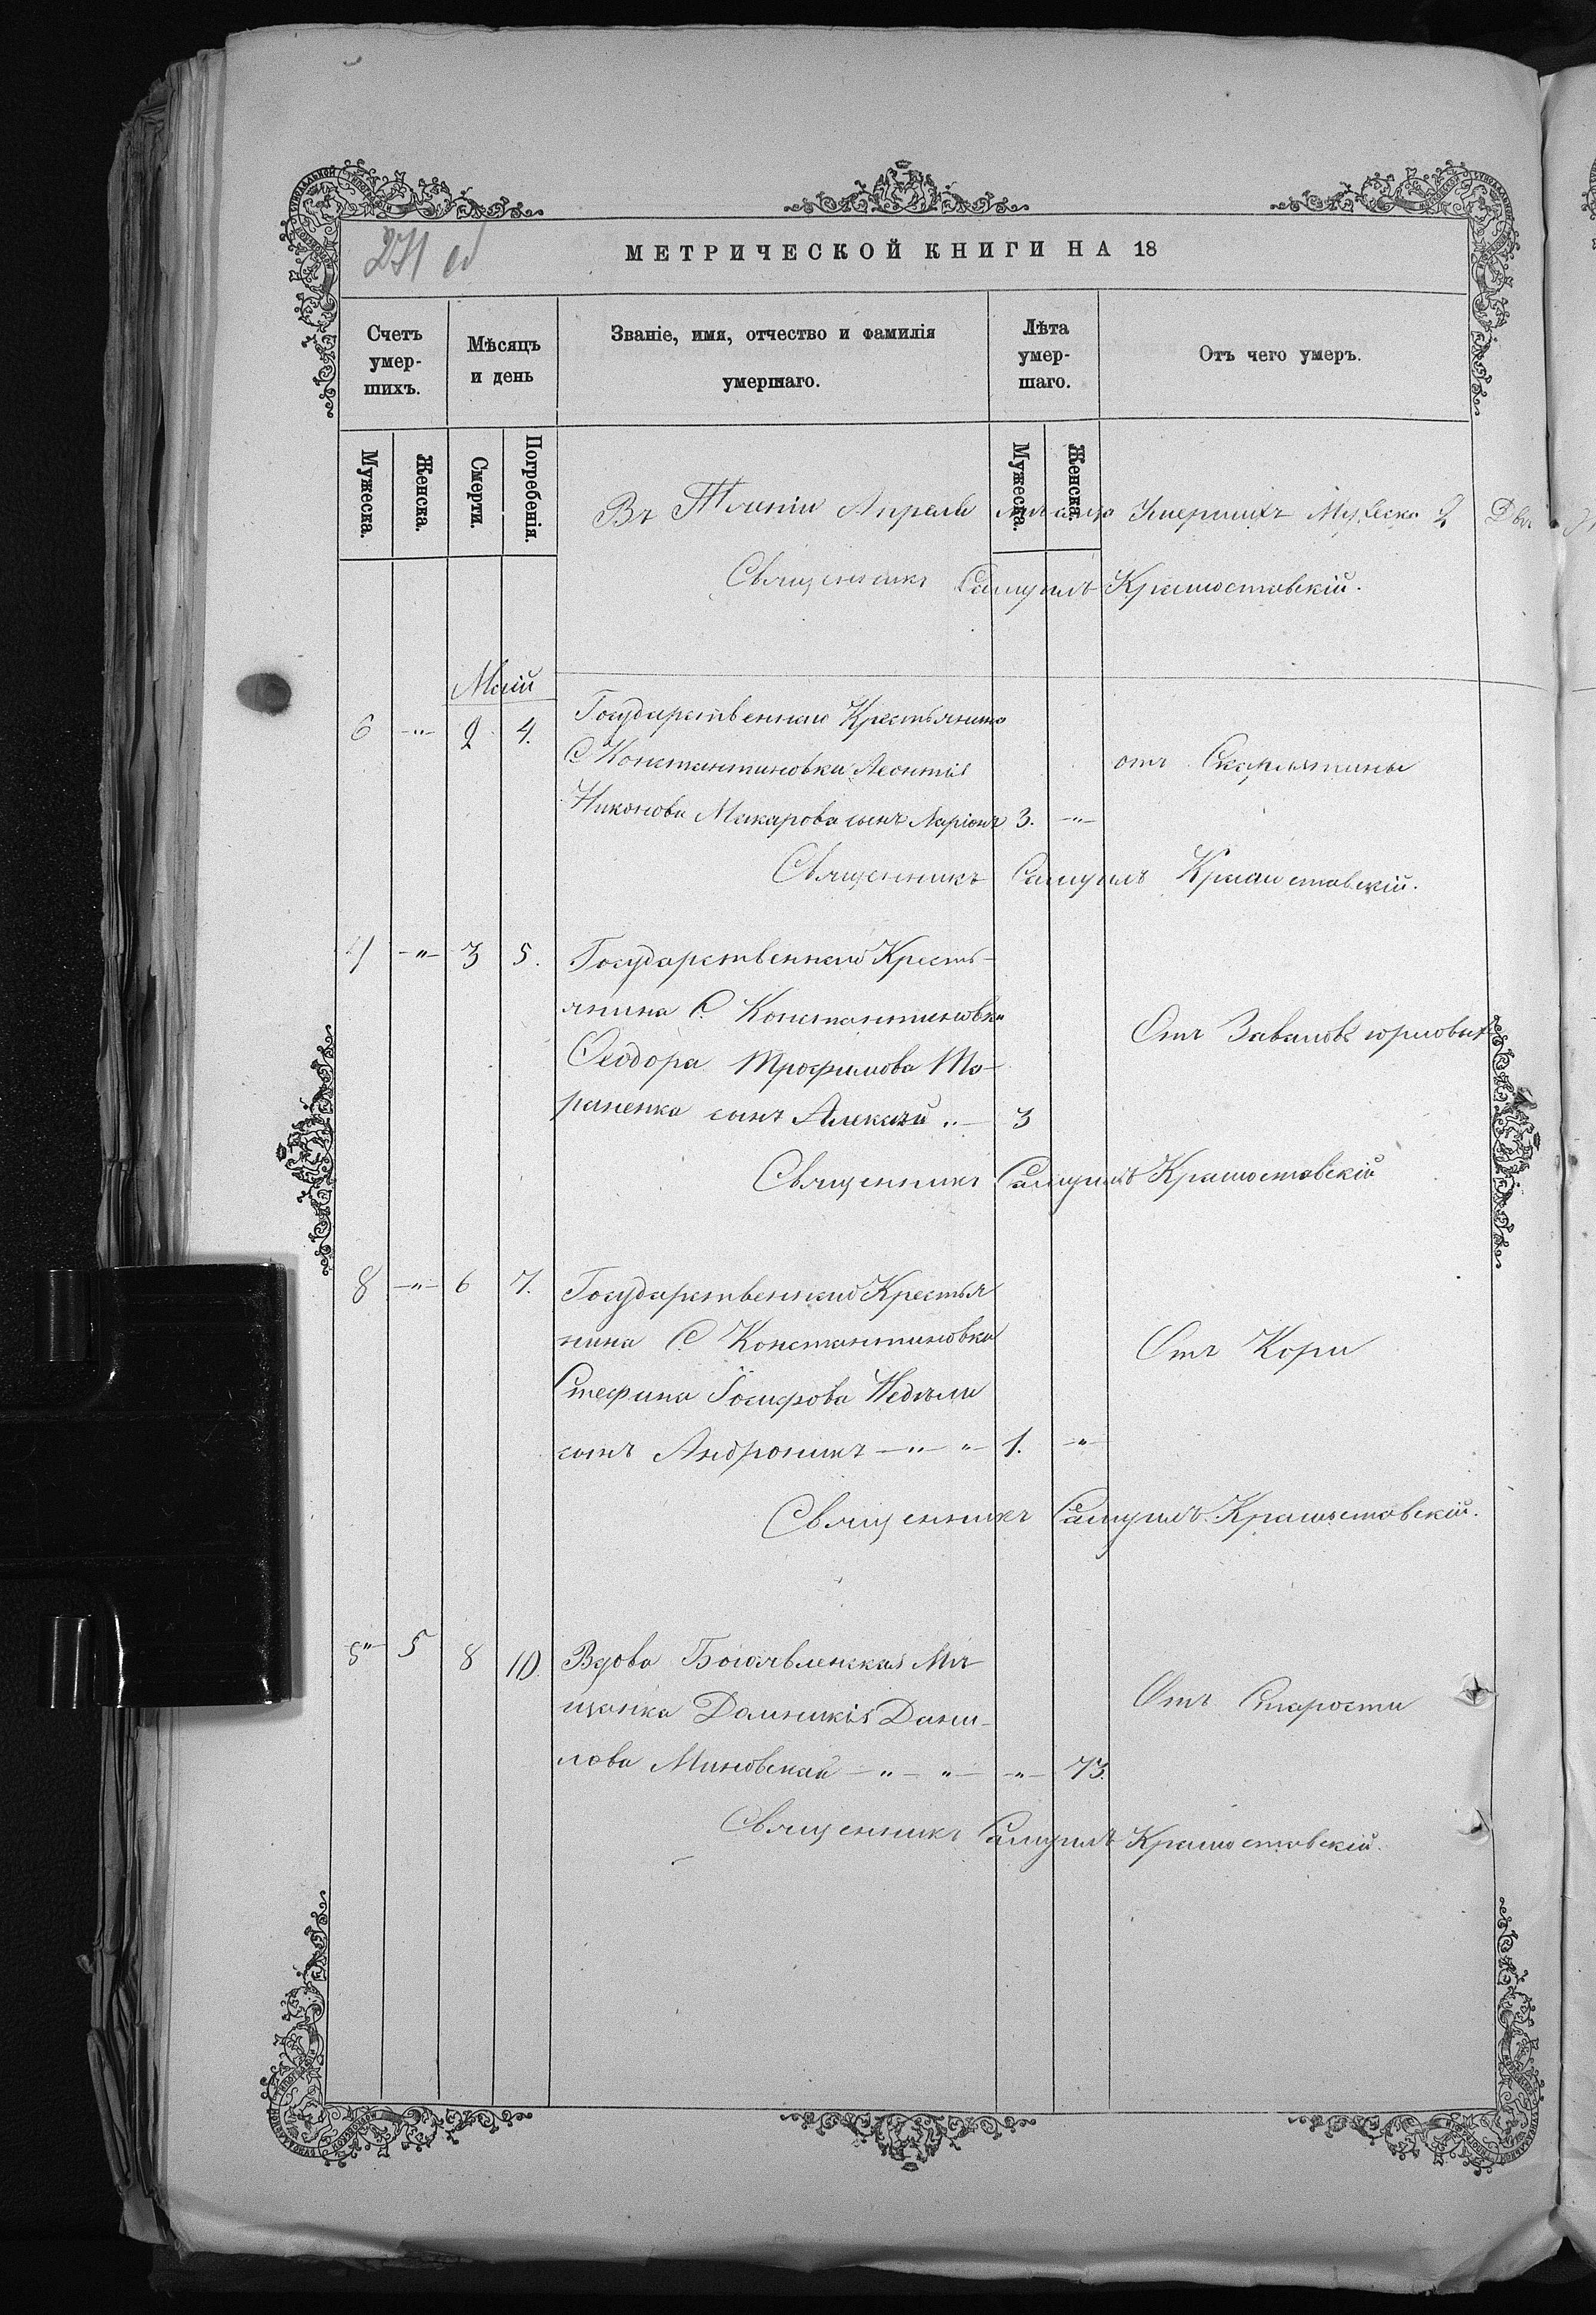 271 об
МЕТРИЧЕСКОЙ КНИГИ НА 18
Счетъ умер-шихъ.
Мѣсяцъ и день
Званіе, имя, отчество и фамилія умершаго.
Лѣта умер-шаго.
Отъ чего умеръ.
Мужеска. Женска. Смерти. Погребенія. Мужеска. Женска.
Въ Апреле мѣсяцѣ Умершихъ Мужеска 2 Два
Священникъ Самуилъ Красноставскій.
Май
6 -"- 2 4. Государственнаго Крестьянина
С Константиновки Леонтія отъ Скарлятины
Никонова Макарова сынъ Ларіонъ 3. -"-
Священникъ Самуилъ Красноставскій.
7 -"- 3 5. Государственнаго Кресть-
янина С. Константиновки
Ѳеодора Трофимова То- Отъ Заваловъ горловыхъ
раненка сынъ Алексѣй "- 3
Священникъ Самуилъ Красноставскій
8 -"- 6 7. Государственнаго Крестья
нина С Константиновки Отъ Кори
Стефана Іосифова Недѣли
сынъ Андроникъ -"- "- 1. -"-
Священникъ Самуилъ Красноставскій.
-"- 5 8 10. Вдова Богоявленская Мѣ-
щанка Домникія Дани- Отъ Старости
лова Миновская -"- "- -"- 73.
Священникъ Самуилъ Красноставскій.